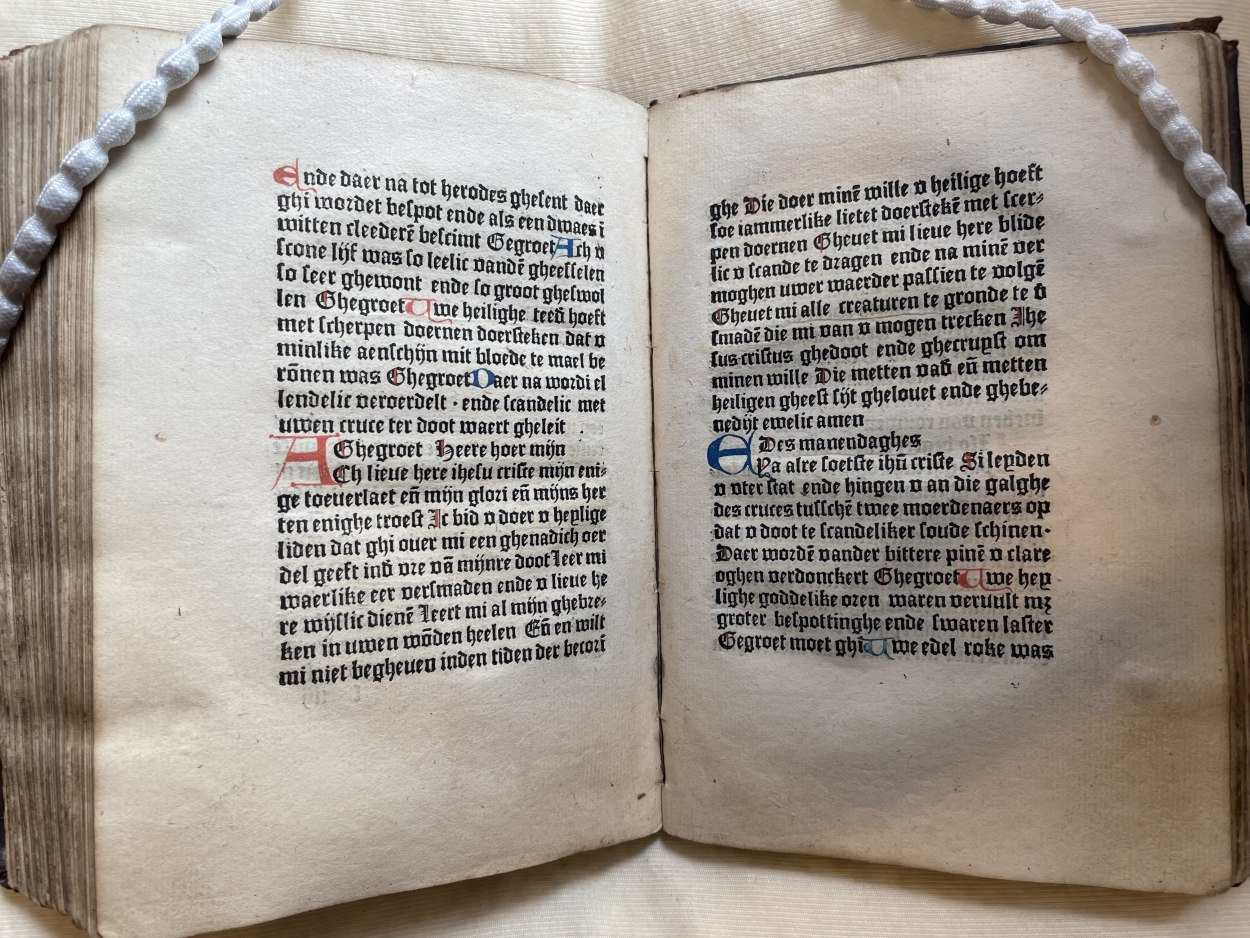 Ende daer na tot herodes ghesent daer
ghi wordet bespot ende als een dwaes ī
witten cleederē bescimt Gegroet Ach v
scone lijf was so leelic vandē gheesselen
so seer ghewont ende so groot gheswol
len Ghegroet Uwe heilighe teed̄ hoeft
met scherpen doernen doersteken dat v
minlike aenschijn mit bloede te mael be
rōnen was Ghegroet Daer na wordi el
lendelic veroerdelt · ende scandelic met
uwen cruce ter doot waert gheleit
Ghegroet Heere hoer mijn
ACh lieue here ihesu criste mijn eni⸗
ge toeuerlaet en̄ mijn glori en̄ mijns her
ten enighe troest Ic bid v doer v heylige
liden dat ghi ouer mi een ghenadich oer
del geeft ind̄ vre vā mijnre doot Leer mi
waerlike eer versmaden ende v lieue he
re wijslic dienē Leert mi al mijn ghebre⸗
ken in uwen wōden heelen En̄ en wilt
mi niet begheuen inden tiden der becorī
ghe Die doer minē wille v heilige hoeft
soe iammerlike lietet doerstekē met scer⸗
pen doernen Gheuet mi lieue here blide
lic v scande te dragen ende na minē ver
moghen uwer waerder passien te volgē
Gheuet mi alle creaturen te gronde te v̄
smadē die mi van v mogen trecken Ihe
sus cristus ghedoot ende ghecruyst om
minen wille Die metten vad̄ en̄ metten
heiligen gheest sijt ghelouet ende ghebe⸗
nedijt ewelic amen
Des manendaghes
EYa alre soetste ihū criste Si leyden
v vter stat ende hingen v an die galghe
des cruces tusschē twee moerdenaers op
dat v doot te scandeliker soude schinen·
Daer wordē vander bittere pinē v clare
oghen verdonckert Ghegroet Uwe hey
lighe goddelike oren waren veruult mꝫ
groter bespottinghe ende swaren laster
Gegroet moet ghi Uwe edel roke was